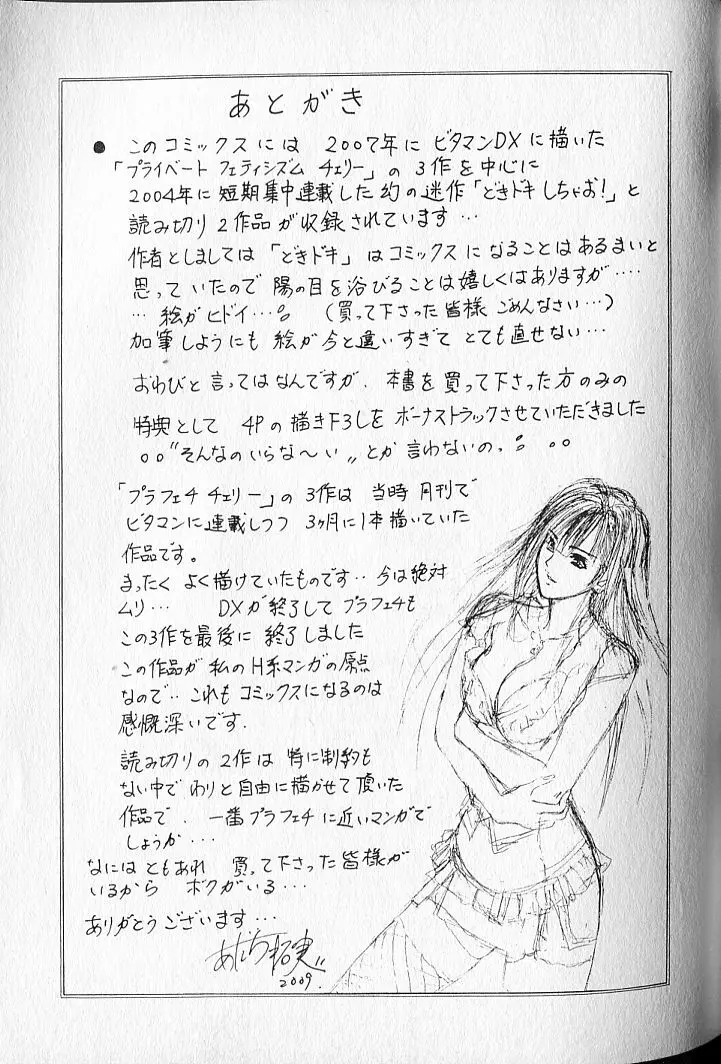 あとがき
● このコミックスには 2007年に ビタマンDXに描いた
「プライベート フェティシズム チェリー」の 3作を中心に
2004年に短期集中連載した幻の迷作「どきドキしちゃお!」と
読み切り2作品が収録されています…
作者としましては「どきドキ」はコミックスになることはあるまいと
思っていたので陽の目を浴びることは嬉しくはありますが‥‥
… 絵がヒドイ…。 (買って下さった皆様ごめんなさい…)
加筆しようにも絵が今と違いすぎてとても直せない…
おわびと言ってはなんですが、本書を買って下さった方のみの
特典として 4Pの描き下ろしをボーナストラックさせていただきました
。。"そんなのいらな〜い〟とか言わないの。
「プラフェチチェリー」の3作は 当時 月刊で
ビタマンに連載しつつ 3ヶ月に1本描いていた
作品です。
まったく よく描けていたものです‥今は絶対
ムリ… DXが終了してプラフェチも
この3作を最後に終了しました
この作品が私のH系マンガの原点
なので‥これもコミックスになるのは
感慨深いです.
読み切りの2作は 特に制約も
ない中でわりと自由に描かせて頂いた
作品で、一番プラフェチに近いマンガで
しょうか…
なにはともあれ 買って下さった皆様が
いるから ボクがいる…
ありがとうございます…
拓実
2009.